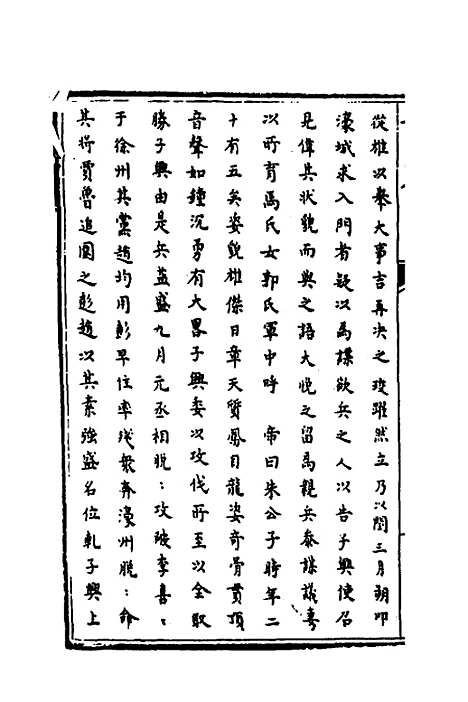 從雄以舉大事吉再決之珓躍然立乃以閏三月朔叩
濠城求入門者疑以為諜欲兵之人以告子興使召
見偉其狀貌而與之語大悅之留為親兵泰謀議妻
以所育馬氏女郭氏軍中呼 帝曰朱公子時年二
十有五矣姿貌雄傑日章天質鳳目龍姿奇骨貫頂
音聲如鐘沉勇有大畧子興委以攻伐所至以全取
勝子興由是兵益盛九月元丞相脫〻攻破李喜〻
于徐州其黨趙均用彭早住率殘衆奔濠州脫〻命
其将賈魯追圍之彭趙以其素強盛名位軋子興上